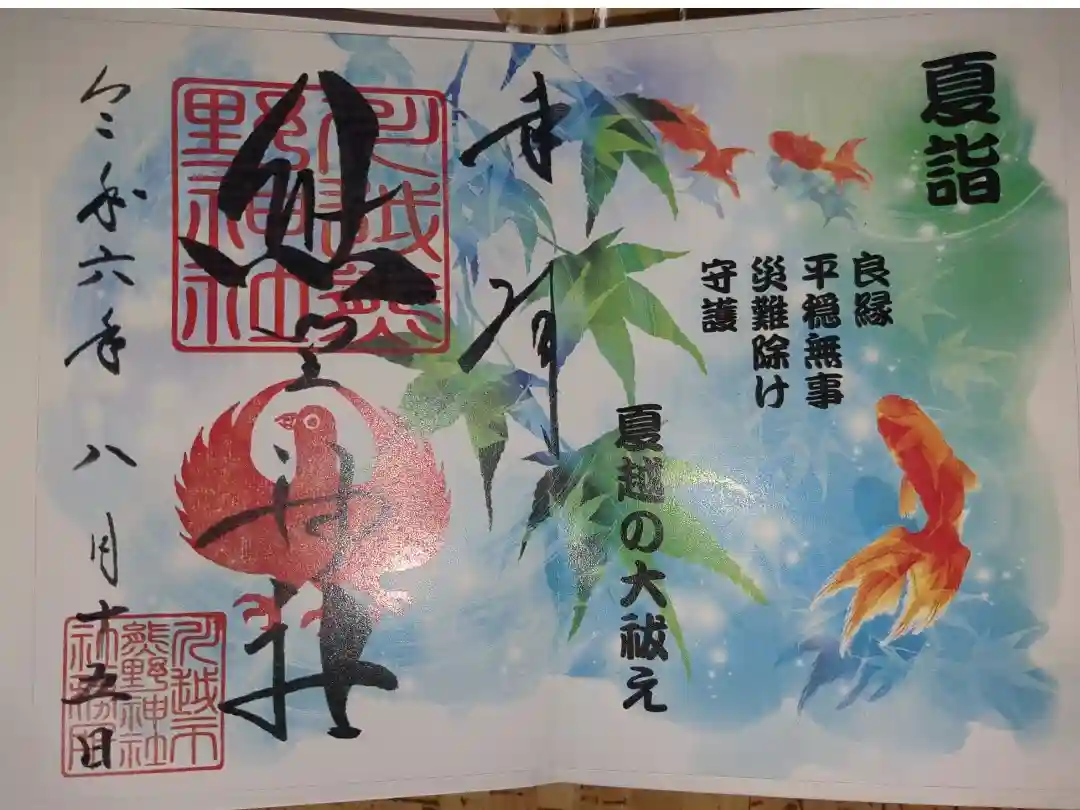 夏詣
良縁
平穏無事
災難除け
守護
夏越の大祓え
奉拝
川越熊
野神社
熊野神社
令和六年八月十五日
川越市
熊野神社